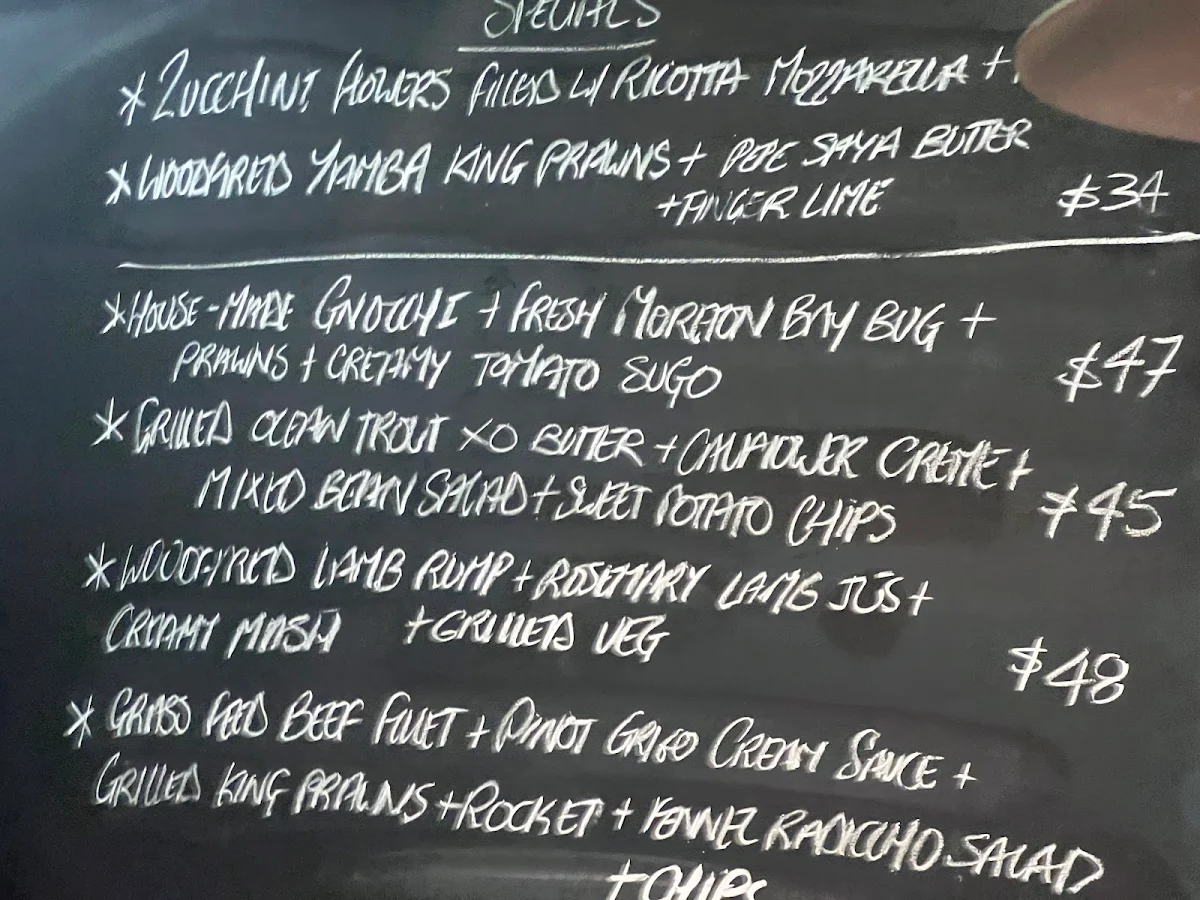 SPECIALS
* ZUCCHINI FLOWERS FILLED W/ RICOTTA MOZZARELLA +
* WOODFIRED YAMBA KING PRAWNS + PEPE SAYA BUTTER
+ FINGER LIME $34
* HOUSE-MADE GNOCCHI + FRESH MORETON BAY BUG +
PRAWNS + CREAMY TOMATO SUGO $47
* GRILLED OCEAN TROUT XO BUTTER + CAULIFLOWER CREME +
MIXED BEAN SALAD + SWEET POTATO CHIPS $45
* WOODFIRED LAMB RUMP + ROSEMARY LAMB JUS +
CREAMY MASH + GRILLED VEG $48
* GRASS FED BEEF FILLET + PINOT GRIGIO CREAM SAUCE +
GRILLED KING PRAWNS + ROCKET + FENNEL RADICCHIO SALAD
+ CHIPS